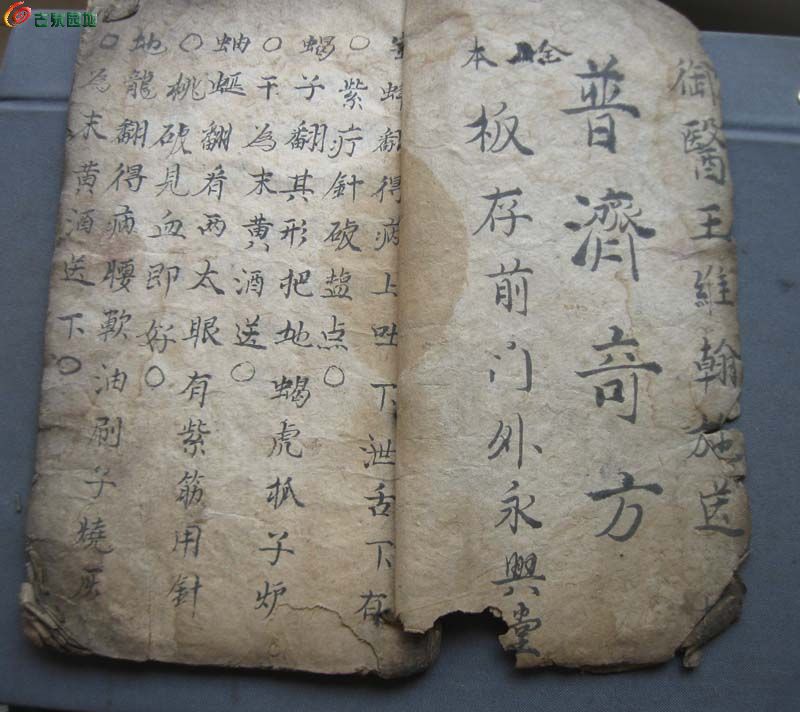 御醫王維翰施送
普濟奇方
板存前门外永興堂
金 本
翻得病上吐下泄舌下有
○紫疔針破盐点○
蝎子翻其形把地蝎虎抓子炉
○干為末黄酒送○
蚰蜒翻看两太眼有紫筋用針
○桃破見血即好○
地龍翻得病腰軟油刷子燒灰
○為末黄酒送下○
古泉园地